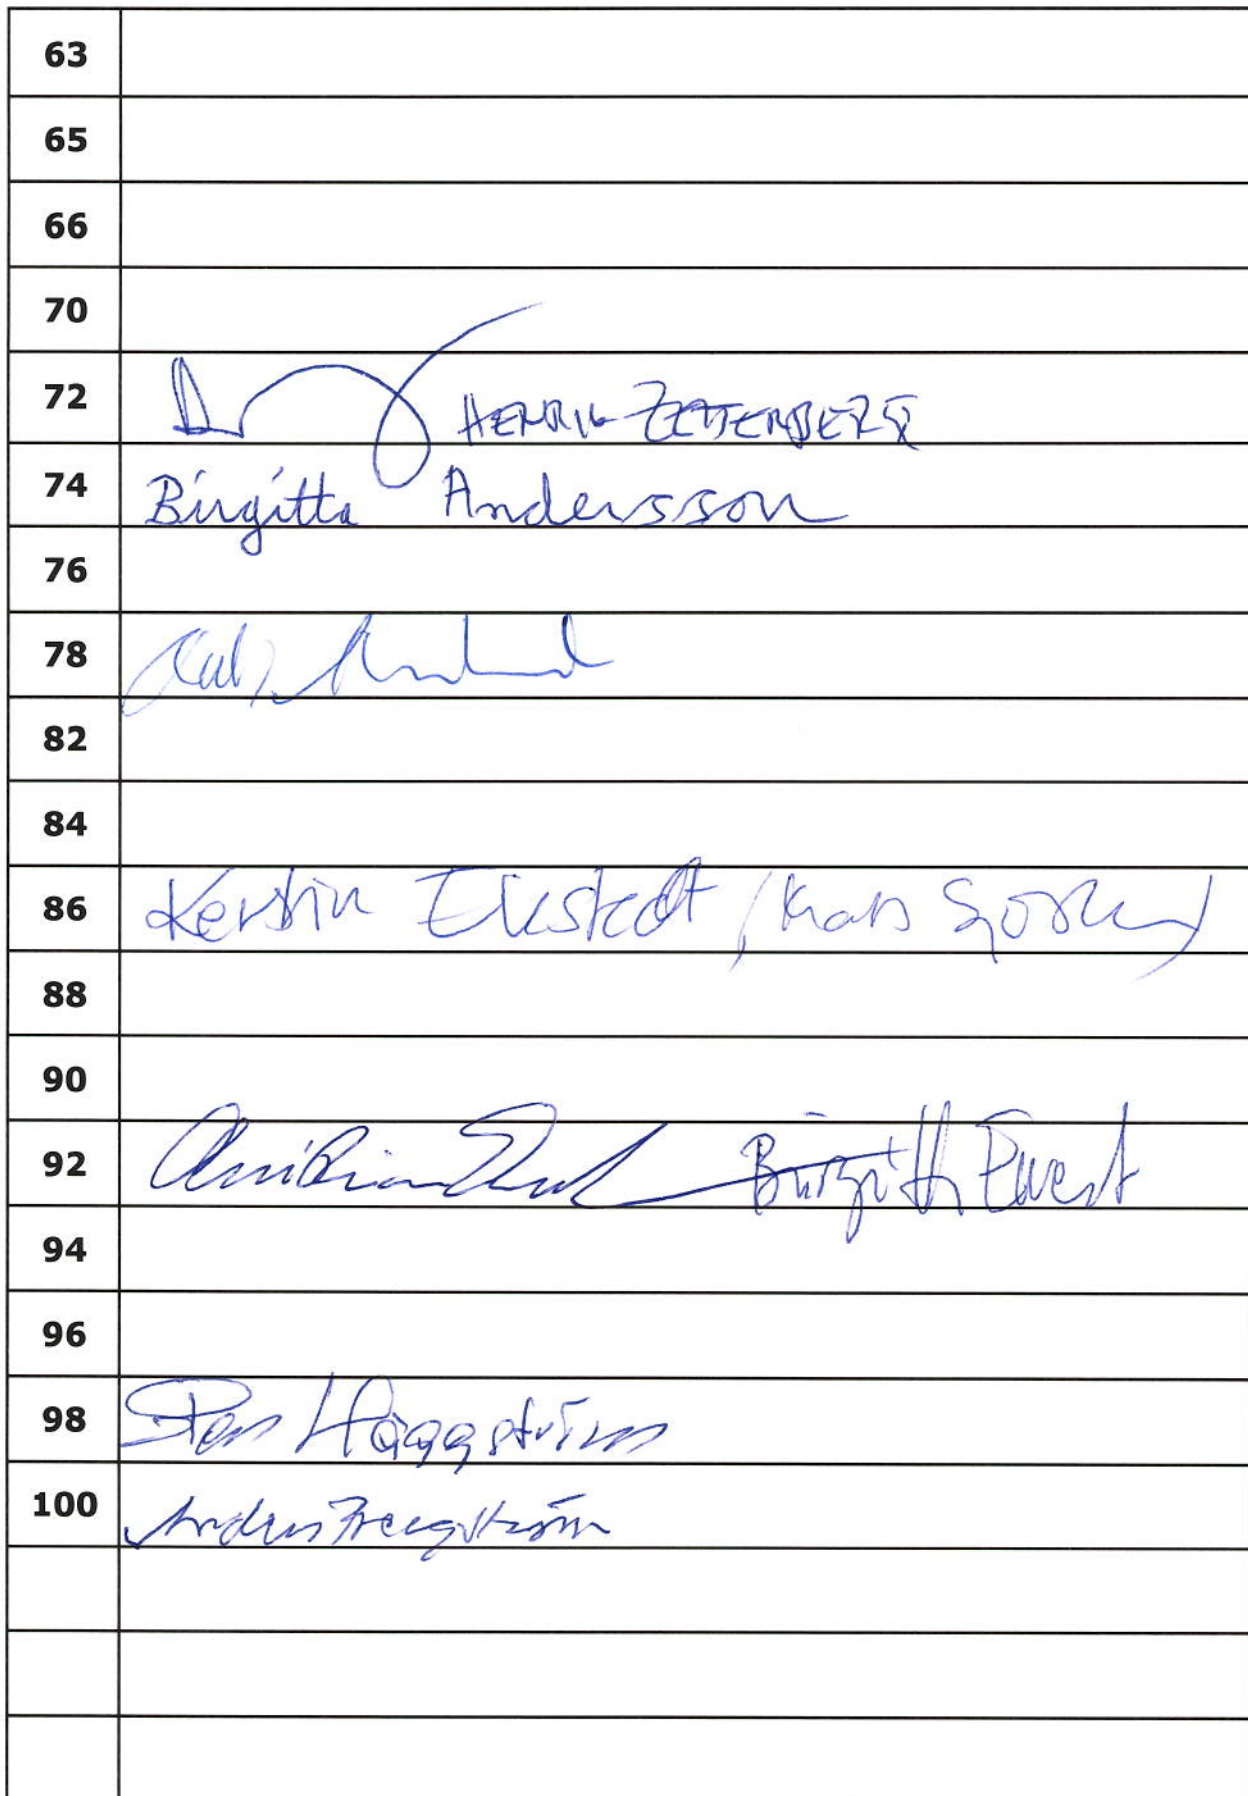 63
65
66
70
72 HENRIK ZETTERBERG
74 Birgitta Andersson
76
78
82
84
86 Kerstin Ekstedt (Mats
88
90
92 Birgitta
94
96
98 Sten Häggström
100 Anders